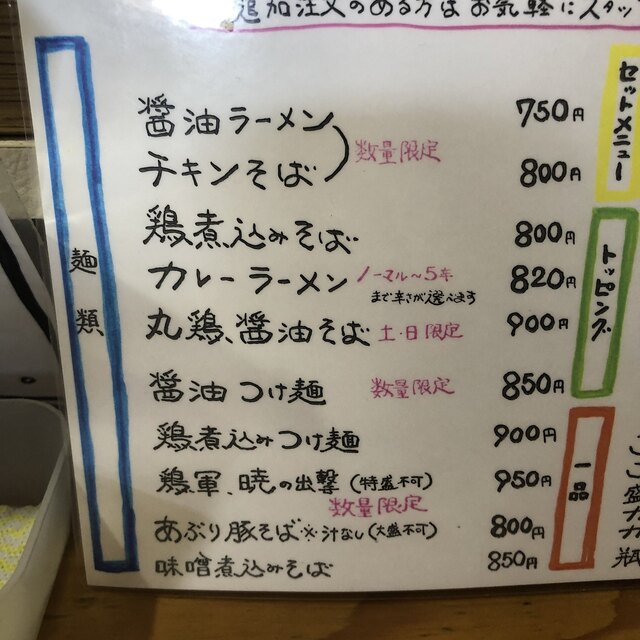 追加注文のある方はお気軽にスタッ
麺類
醤油ラーメン 750円
チキンそば 数量限定 800円
鶏煮込みそば 800円
カレーラーメン ノーマル～5辛 820円
まで辛さが選べます
丸鶏、醤油そば 土・日限定 900円
醤油つけ麺 数量限定 850円
鶏煮込みつけ麺 900円
鶏軍、暁の出撃(特盛不可) 950円
数量限定
あぶり豚そば※汁なし(大盛不可) 800円
味噌煮込みそば 850円
セットメニュー
トッピング
一品